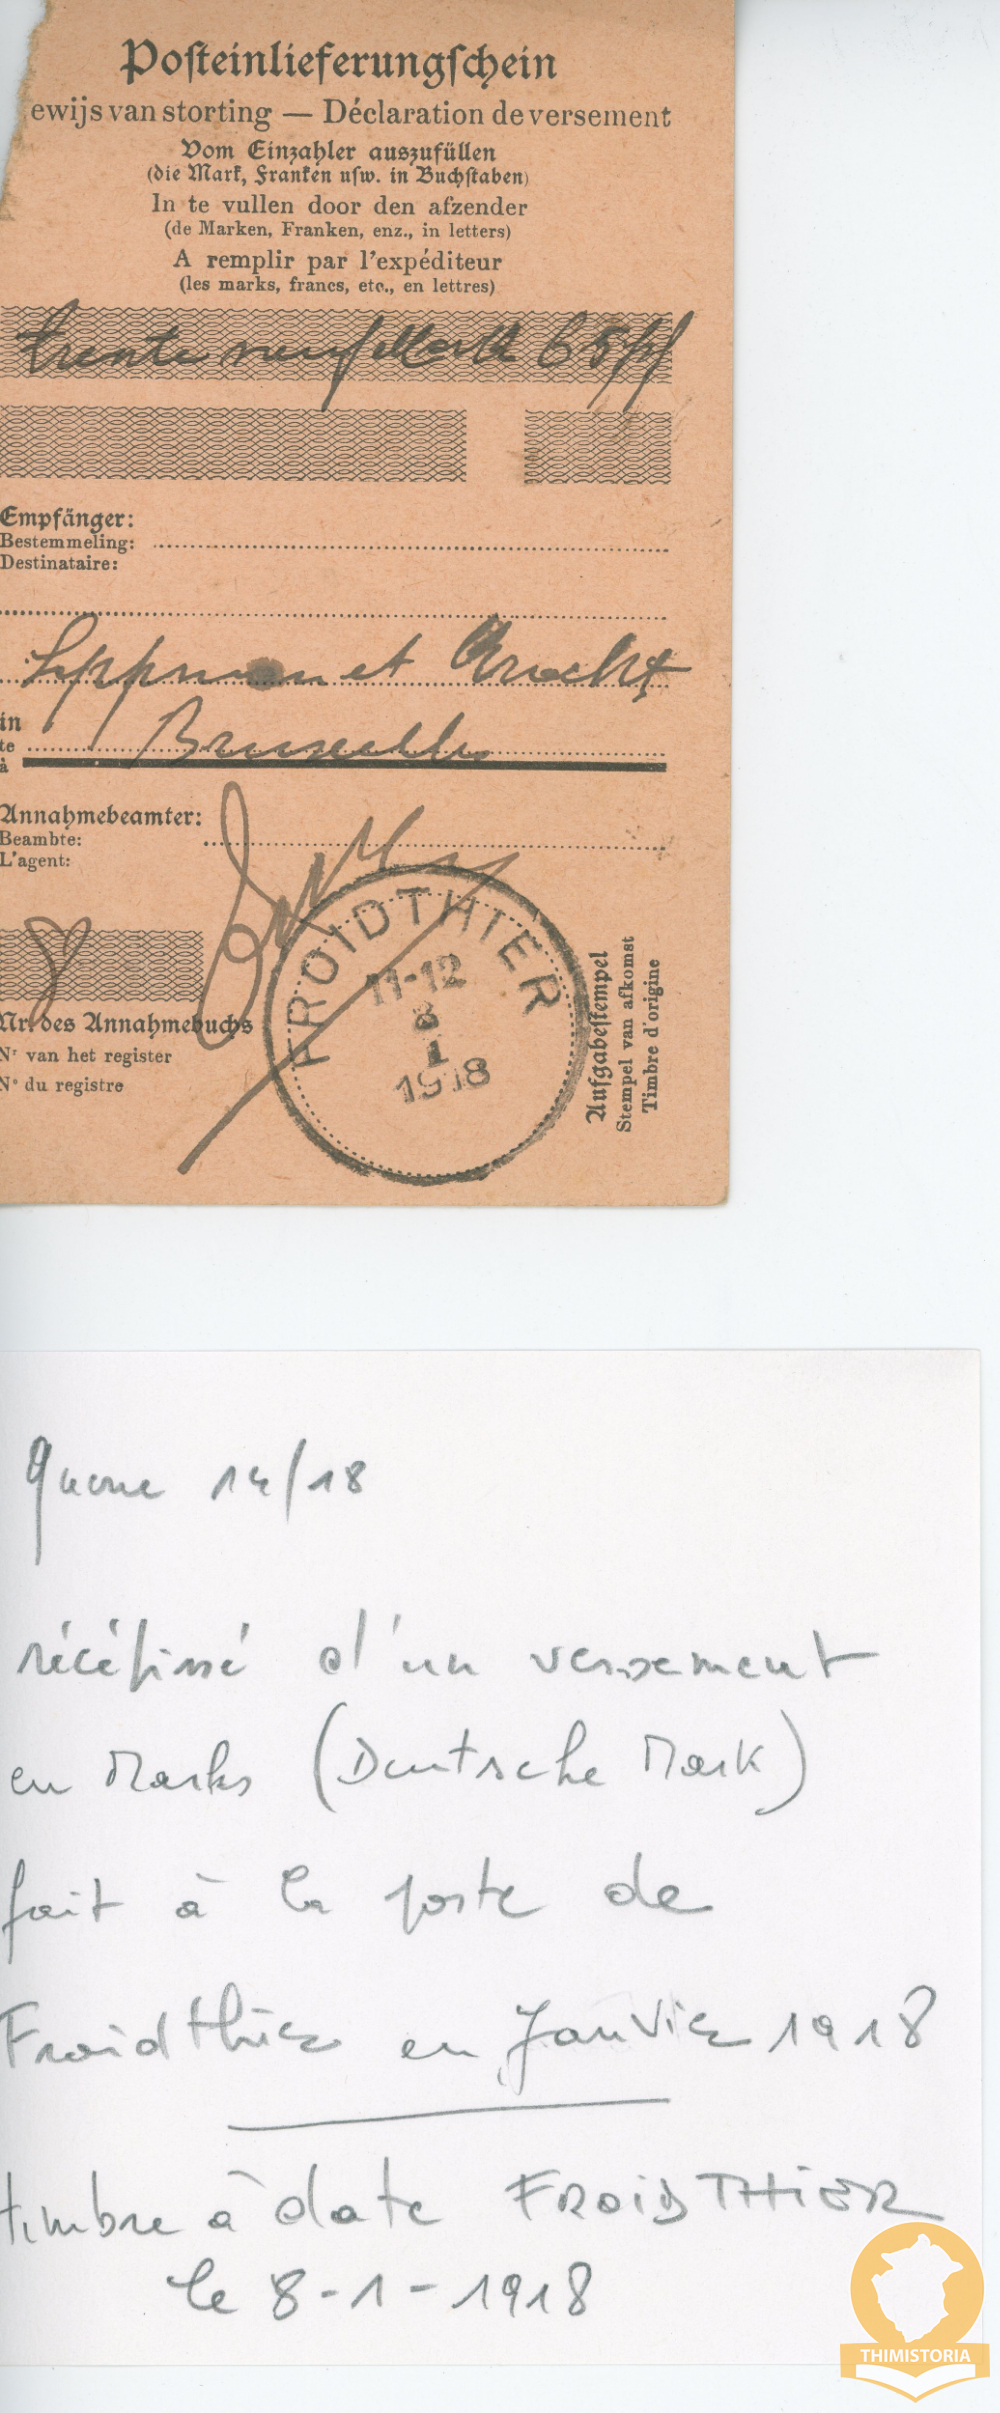 Posteinlieferungsschein
ewijs van storting — Déclaration de versement
Vom Einzahler auszufüllen
(die Mark, Franken usw. in Buchstaben)
In te vullen door den afzender
(de Marken, Franken, enz., in letters)
A remplir par l'expéditeur
(les marks, francs, etc., en lettres)
trente neuf Mark 65 pf
Empfänger:
Bestemmeling:
Destinataire:
et
in
te
à
Bruxelles
Annahmebeamter:
Beambte:
L'agent:
FROIDTHIER
11-12
8
1
1918
Nr. des Annahmebuchs
Nr van het register
N° du registre
Aufgabestempel
Stempel van afkomst
Timbre d'origine
guerre 14/18
récépissé d'un versement
en Marks (Deutsche Mark)
fait à la poste de
Froidthier en Janvier 1918
timbre à date FROIDTHIER
le 8-1-1918
THIMISTORIA